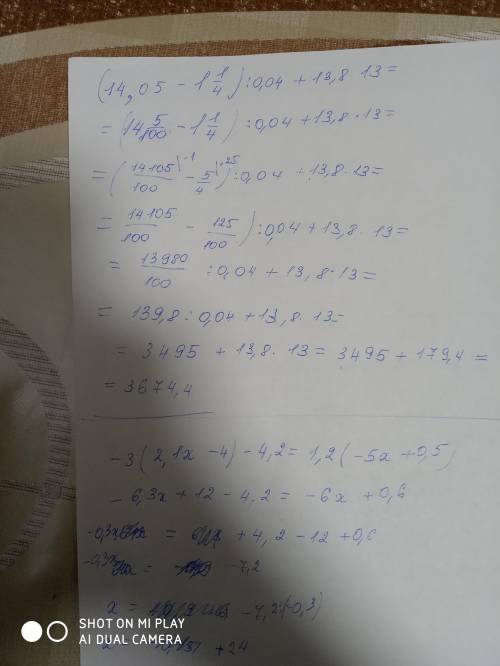 (14,05 - 1 1/4) : 0,04 + 13,8 · 13 =
= (14 5/100 - 1 1/4) : 0,04 + 13,8 · 13 =
= (14105/100 \·1 - 5/4 \·25) : 0,04 + 13,8 · 13 =
= 14105/100 - 125/100) : 0,04 + 13,8 · 13 =
= 13980/100 : 0,04 + 13,8 · 13 =
= 139,8 : 0,04 + 13,8 · 13 =
= 3495 + 13,8 · 13 = 3495 + 179,4 =
= 3674,4
-3(2,1x - 4) - 4,2 = 1,2(-5x + 0,5)
- 6,3x + 12 - 4,2 = -6x + 0,6
-0,3x = + 4,2 - 12 + 0,6
-0,3x = -7,2
x = -7,2:(-0,3)
x = +24
SHOT ON MI PLAY
AI DUAL CAMERA